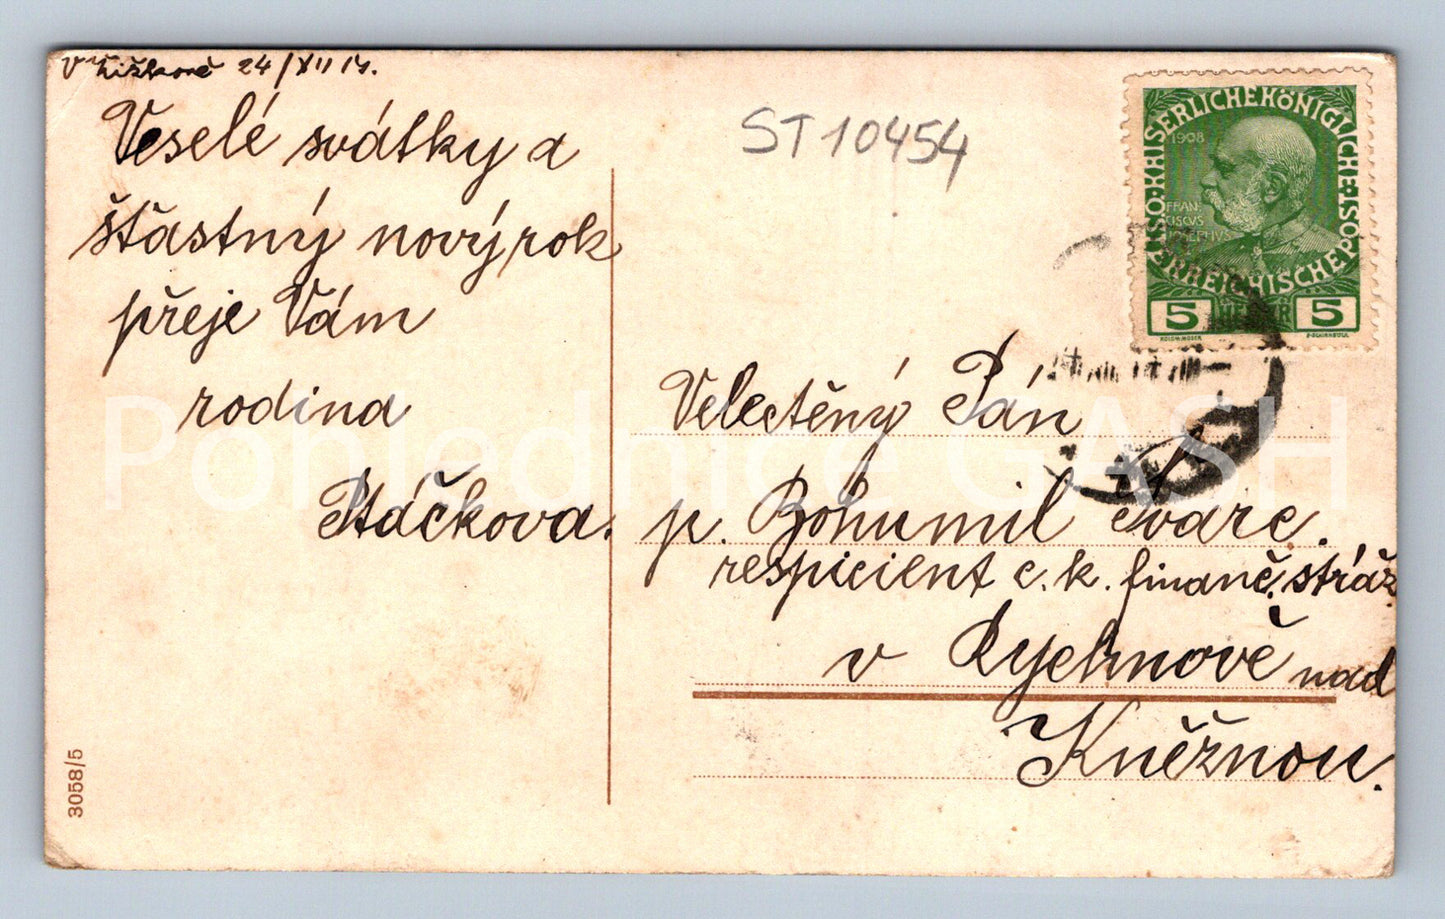 V Žižkově 24/XII 14.
Veselé svátky a
šťastný nový rok
přeje Vám
rodina
Ptáčkova.
ST 10454
KAISERLICHEKÖNIGLICHE
ÖSTERREICHISCHE POST
1908
FRAN
CISCVS
IOSEPHVS
5 HELLER 5
KOLO. MOSER
F. SCHIRNBÖCK
Velectěný Pán
p. Bohumil Švarc.
respicient c. k. finanč. stráž
v Rychnově nad
Kněžnou.
3058/5
Pohlednice GASH